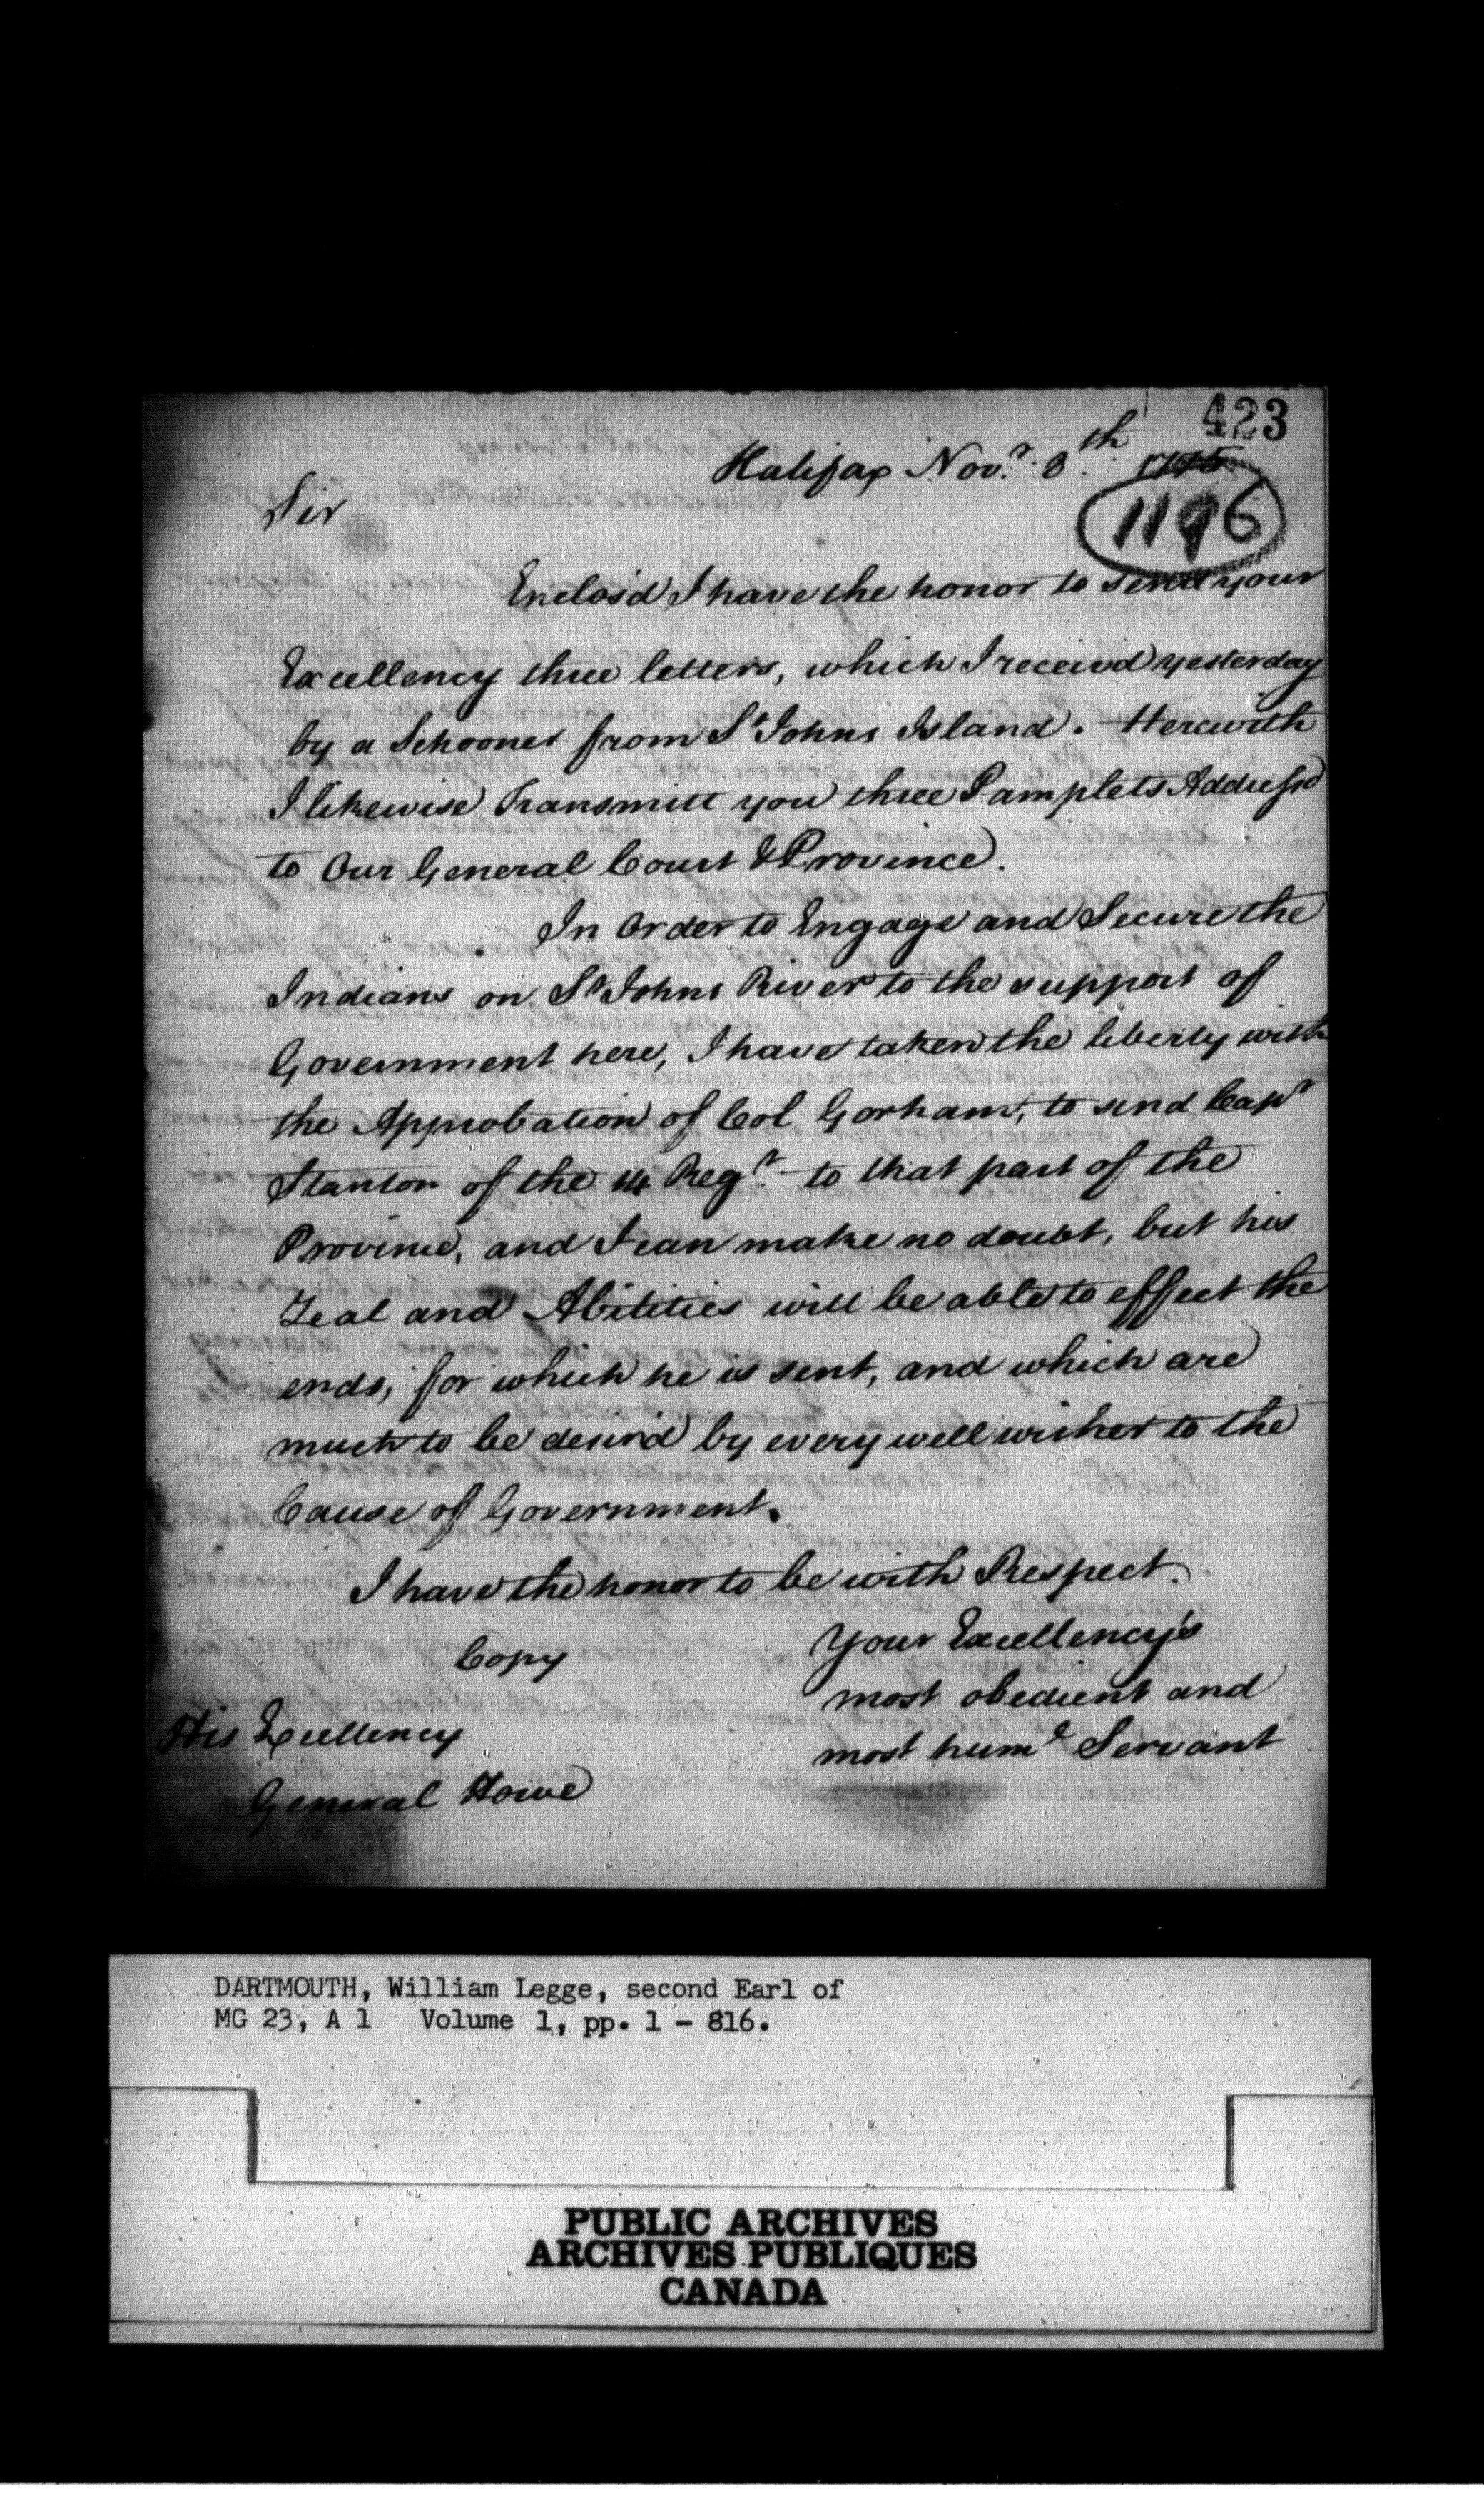 423
Halifax Nov.r 8th 1775
1196
Sir
Enclos'd I have the honor to send your
Excellency three letters, which I receivd yesterday
by a Schooner from St Johns Island. Herewith
I likewise Transmitt you three Pamplets Address'd
to Our General Court & Province.
In Order to Engage and Secure the
Indians on St Johns River to the support of
Government here, I have taken the liberty with
the Approbation of Col Gorham, to send Capt
Stanton of the 14 Regt. to that part of the
Province, and I can make no doubt, but his
Zeal and Abilities will be able to effect the
ends, for which he is sent, and which are
much to be desird by every well wisher to the
Cause of Government.
I have the honor to be with Respect.
Your Excellency's
Copy
most obedient and
His Excellency
most humle Servant
General Howe
DARTMOUTH, William Legge, second Earl of
MG 23, A 1 Volume 1, pp. 1 - 816.
PUBLIC ARCHIVES
ARCHIVES PUBLIQUES
CANADA